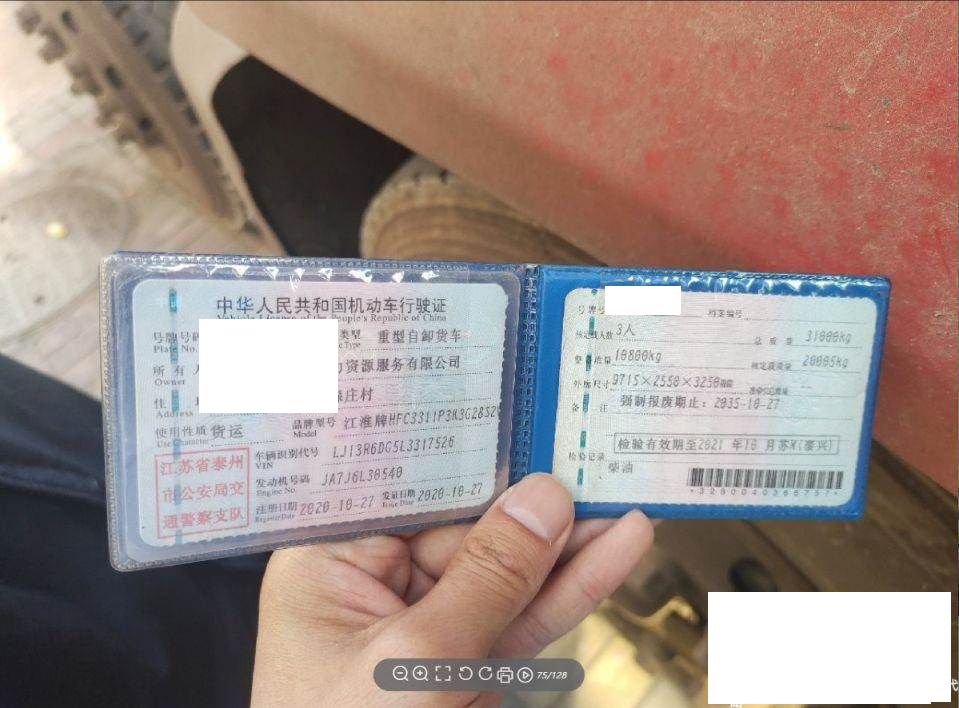 中华人民共和国机动车行驶证
Vehicle License of the People's Republic of China
号牌号码
Plate No.
类型
重型自卸货车
所 有 人
Owner
力资源服务有限公司
住
Address
庄村
使用性质 货运
Use Character
品牌型号 江淮牌HFC3311P3K3G28S2
Model
车辆识别代号
VIN
LJ13R6DG5L3317526
发动机号码
Engine No.
JA7J6L30540
注册日期 2020-10-27
Register Date
发证日期 2020-10-27
Issue Date
江苏省泰州
市公安局交
通警察支队
号牌号
档案编号
核定载人数 3人
总 质 量 31000kg
整备质量 10800kg
核定载质量 20005kg
外廓尺寸 9715×2550×3250mm
备 注 强制报废期止：2035-10-27
检验有效期至2021 年10 月苏M(泰兴)
检验记录
柴油
75/128
代